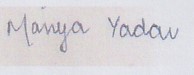 Manya Yadav